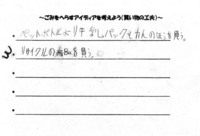 ～ごみをへらすアイディアを考えよう(買い物の工夫)～
ペットボトルよりも なし パックやカんの ほうを買う。
リサイクルの 商品を買う。